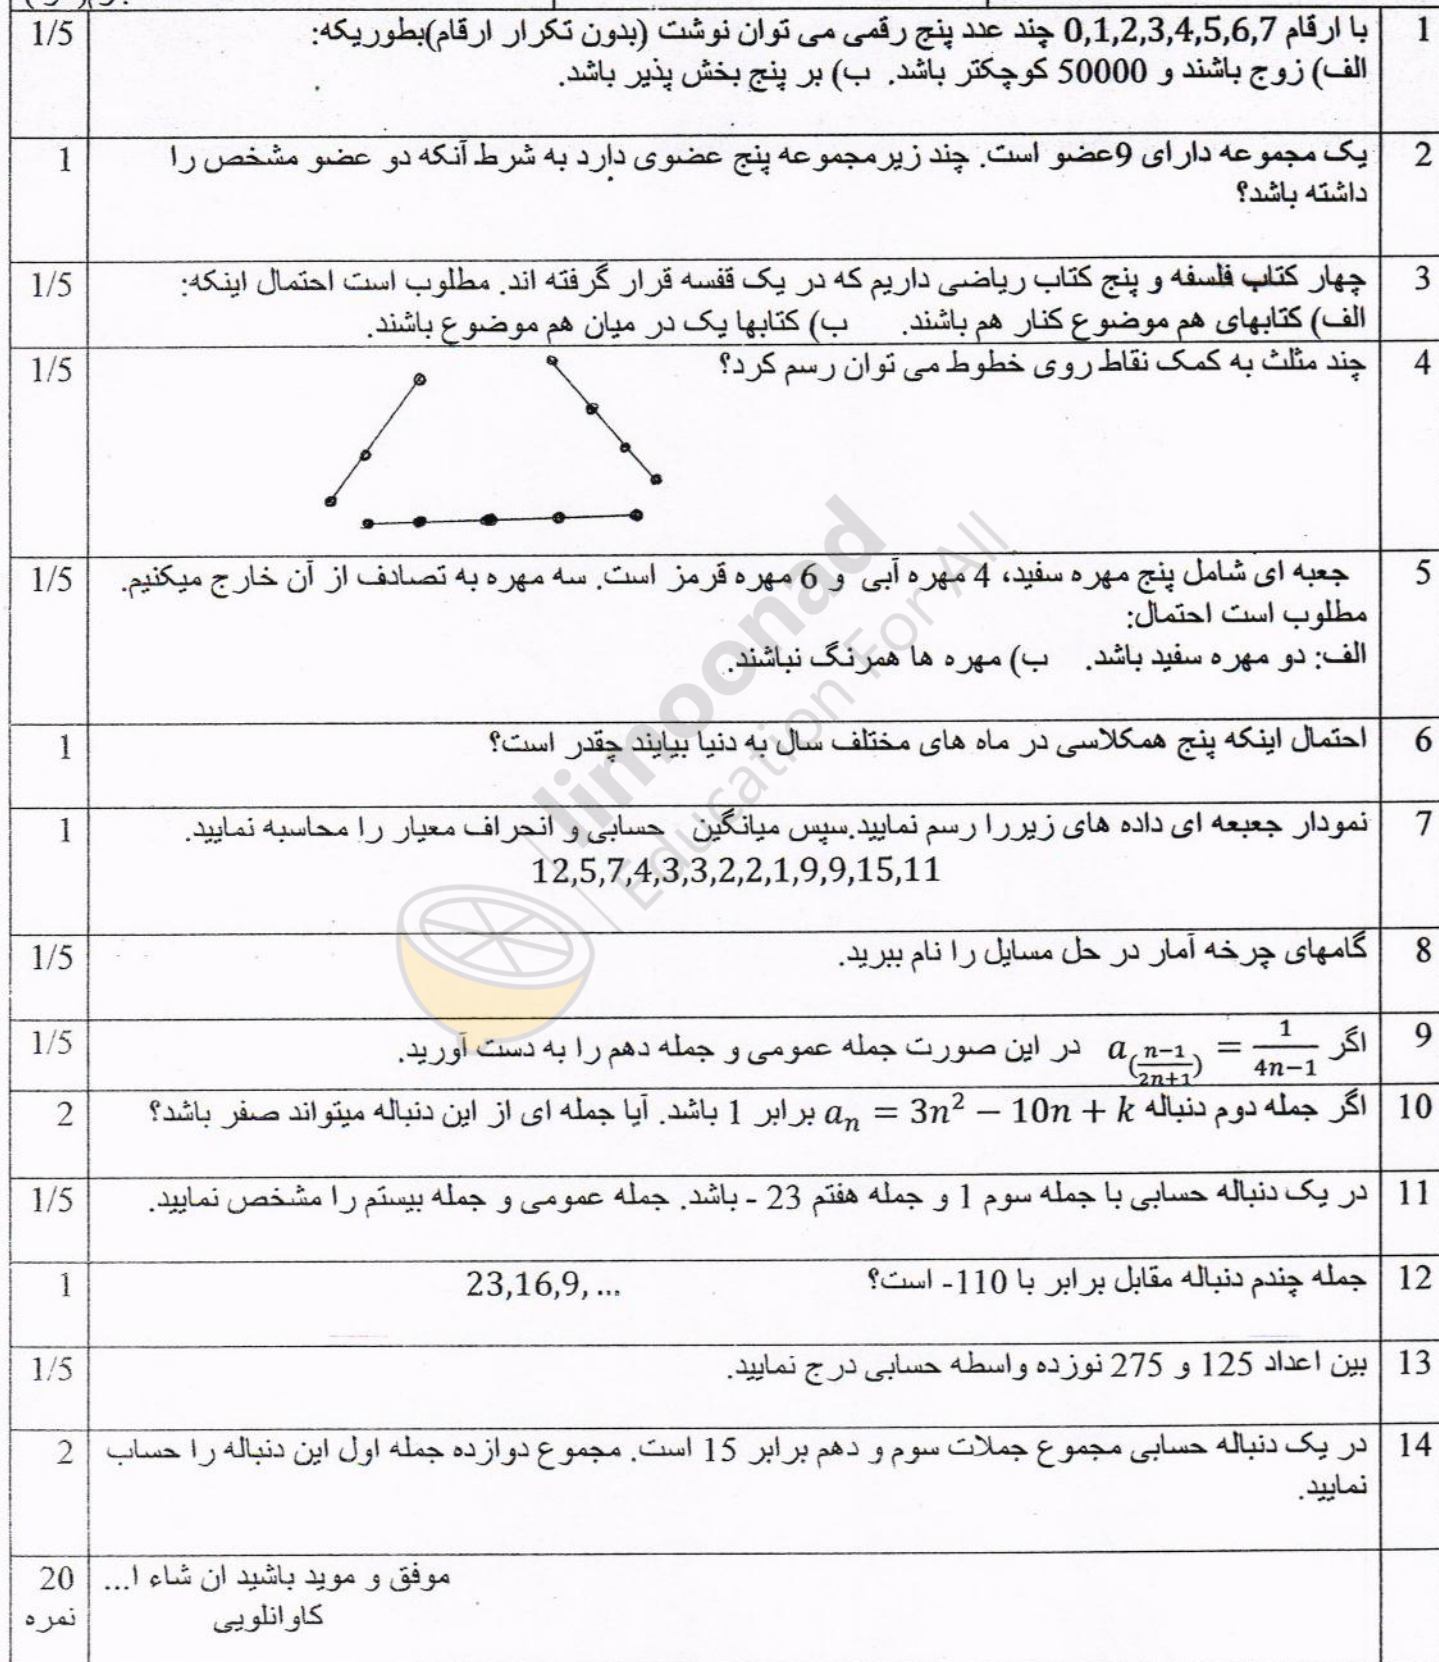 1 با ارقام 0,1,2,3,4,5,6,7 چند عدد پنج رقمی می توان نوشت (بدون تکرار ارقام)بطوریکه: 1/5
الف) زوج باشند و 50000 کوچکتر باشد. ب) بر پنج بخش پذیر باشد.
2 یک مجموعه دارای 9عضو است. چند زیرمجموعه پنج عضوی دارد به شرط آنکه دو عضو مشخص را 1
داشته باشد؟
3 چهار کتاب فلسفه و پنج کتاب ریاضی داریم که در یک قفسه قرار گرفته اند. مطلوب است احتمال اینکه: 1/5
الف) کتابهای هم موضوع کنار هم باشند. ب) کتابها یک در میان هم موضوع باشند.
4 چند مثلث به کمک نقاط روی خطوط می توان رسم کرد؟ 1/5
5 جعبه ای شامل پنج مهره سفید، 4 مهره آبی و 6 مهره قرمز است. سه مهره به تصادف از آن خارج میکنیم. 1/5
مطلوب است احتمال:
الف: دو مهره سفید باشد. ب) مهره ها همرنگ نباشند.
6 احتمال اینکه پنج همکلاسی در ماه های مختلف سال به دنیا بیایند چقدر است؟ 1
7 نمودار جعبعه ای داده های زیررا رسم نمایید.سپس میانگین حسابی و انحراف معیار را محاسبه نمایید. 1
12,5,7,4,3,3,2,2,1,9,9,15,11
8 گامهای چرخه آمار در حل مسایل را نام ببرید. 1/5
9 اگر $a_{(\frac{n-1}{2n+1})} = \frac{1}{4n-1}$ در این صورت جمله عمومی و جمله دهم را به دست آورید. 1/5
10 اگر جمله دوم دنباله $a_n = 3n^2 - 10n + k$ برابر 1 باشد. آیا جمله ای از این دنباله میتواند صفر باشد؟ 2
11 در یک دنباله حسابی با جمله سوم 1 و جمله هفتم 23 - باشد. جمله عمومی و جمله بیستم را مشخص نمایید. 1/5
12 جمله چندم دنباله مقابل برابر با 110- است؟ 23,16,9, ... 1
13 بین اعداد 125 و 275 نوزده واسطه حسابی درج نمایید. 1/5
14 در یک دنباله حسابی مجموع جملات سوم و دهم برابر 15 است. مجموع دوازده جمله اول این دنباله را حساب 2
نمایید.
موفق و موید باشید ان شاء ا... 20
کاوانلویی نمره
limoonad
Education For All